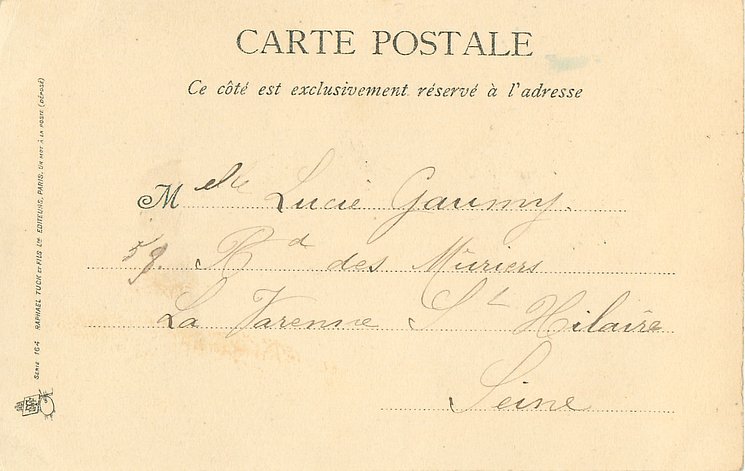 CARTE POSTALE
Ce côté est exclusivement réservé à l'adresse
Melle Lucie Gaumy.
59. Bd des Mûriers
La Varenne St Hilaire
Seine
Série 164 RAPHAEL TUCK ET FILS Lᴰ EDITEURS, PARIS. UN MOT À LA POSTE (DÉPOSÉ)